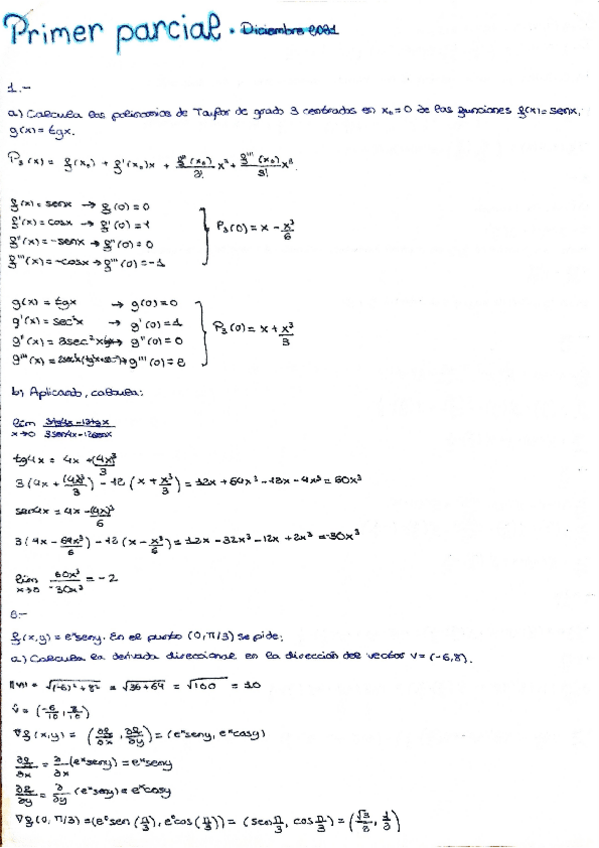 Primer parcial. Diciembre 2021
1.-
a) Calcula los polinomios de Taylor de grado 3 centrados en x₀=0 de las funciones f(x)=senx,
g(x)=tgx.
P₃(x) = f(x₀) + f'(x₀)x + f''(x₀)/2! x² + f'''(x₀)/3! x³.
f(x)=senx → f(0)=0
f'(x)=cosx → f'(0)=1
f''(x)=-senx → f''(0)=0
f'''(x)=-cosx → f'''(0)=-1
P₃(0)=x-x³/6
g(x)=tgx → g(0)=0
g'(x)=sec²x → g'(0)=1
g''(x)=2sec²x → g''(0)=0
g'''(x)= → g'''(0)=2
P₃(0)=x+x³/3
b) Aplicando, calcula:
lim x→0 3tg4x-12tgx / 3sen4x-12senx
tg4x = 4x+(4x)³/3
3(4x+(4x)³/3)-12(x+x³/3)=12x+64x³-12x-4x³=60x³
sen4x = 4x-(4x)³/6
3(4x-64x³/6)-12(x-x³/6)=12x-32x³-12x+2x³=-30x³
lim x→0 60x³/-30x³ = -2
2.-
f(x,y)=eˣseny. En el punto (0,π/3) se pide:
a) Calcula la derivada direccional en la dirección del vector v=(-6,8).
||v|| = √(-6)²+8² = √36+64 = √100 = 10
v̂ = (-6/10, 8/10)
∇f(x,y) = (∂f/∂x, ∂f/∂y) = (eˣseny, eˣcosy)
∂f/∂x = ∂/∂x (eˣseny) = eˣseny
∂f/∂y = ∂/∂y (eˣseny) = eˣcosy
∇f(0,π/3)=(e⁰sen(π/3), e⁰cos(π/3)) = (sen π/3, cos π/3) = (√3/2, 1/2)